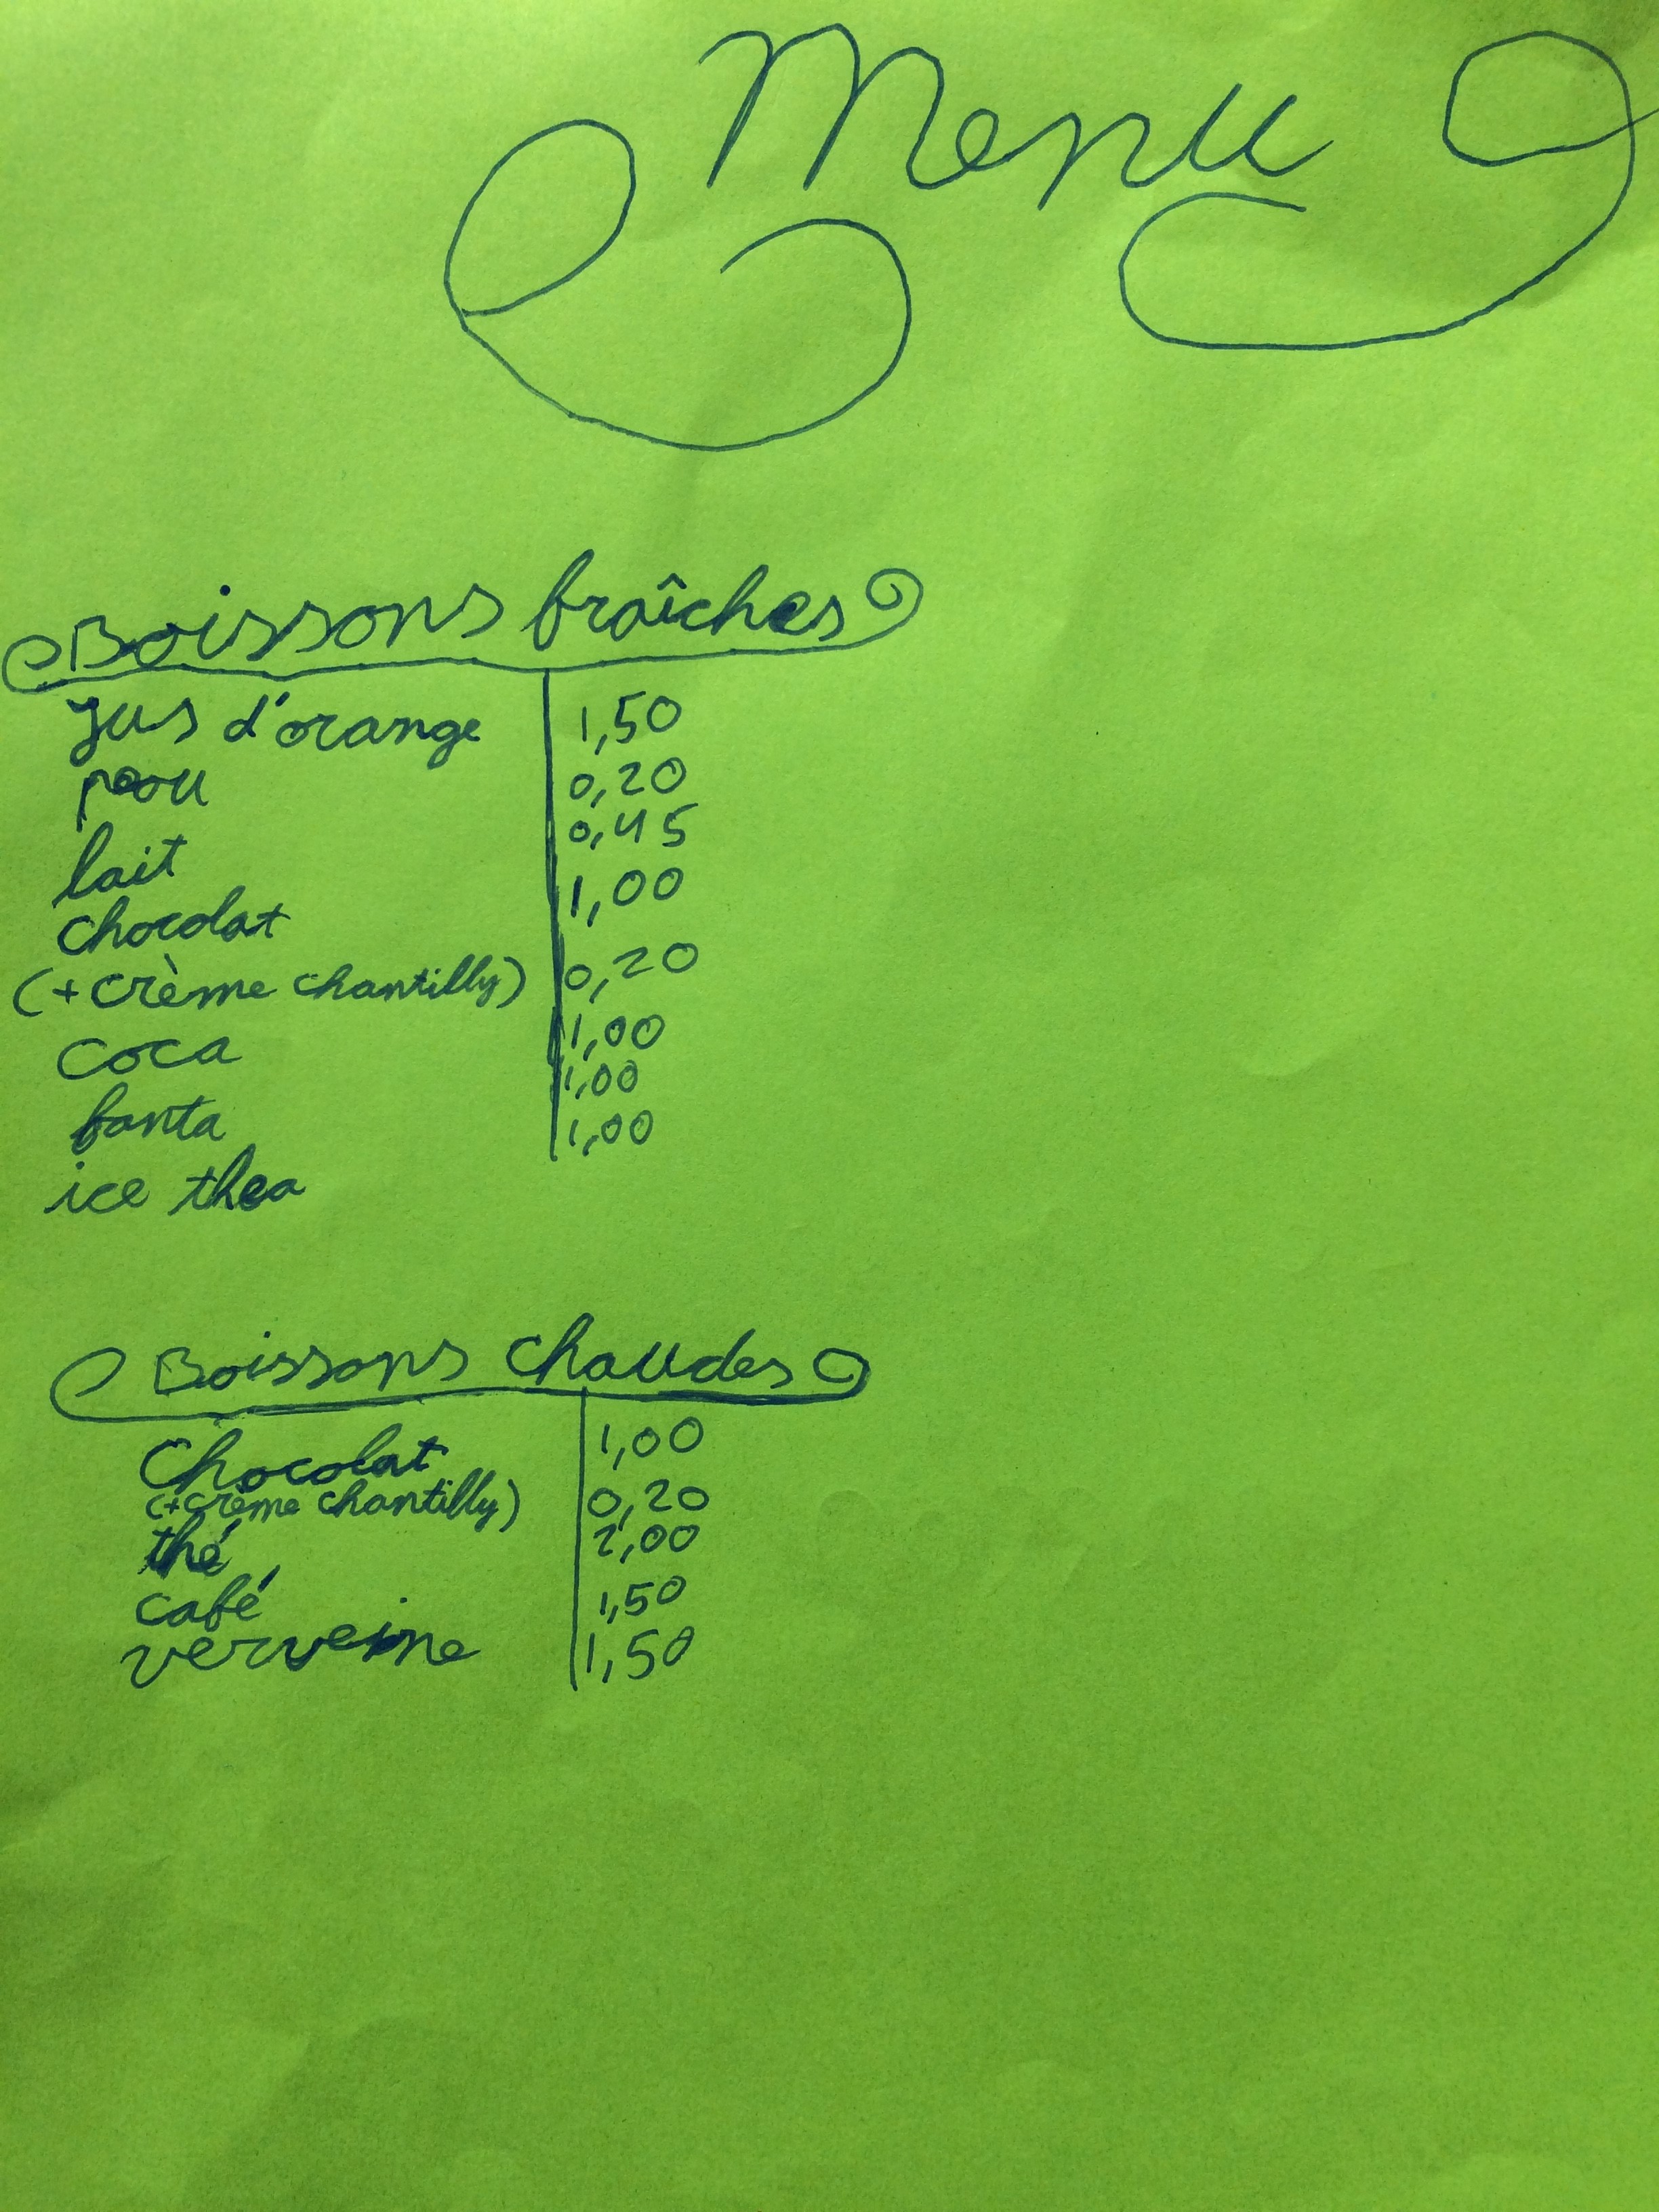 Menu
Boissons fraîches
Jus d'orange 1,50
0,20
lait 0,45
chocolat 1,00
(+crème chantilly) 0,20
coca 1,00
fanta 1,00
ice thea 1,00
Boissons chaudes
Chocolat 1,00
(+crème chantilly) 0,20
thé 2,00
café 1,50
verveine 1,50